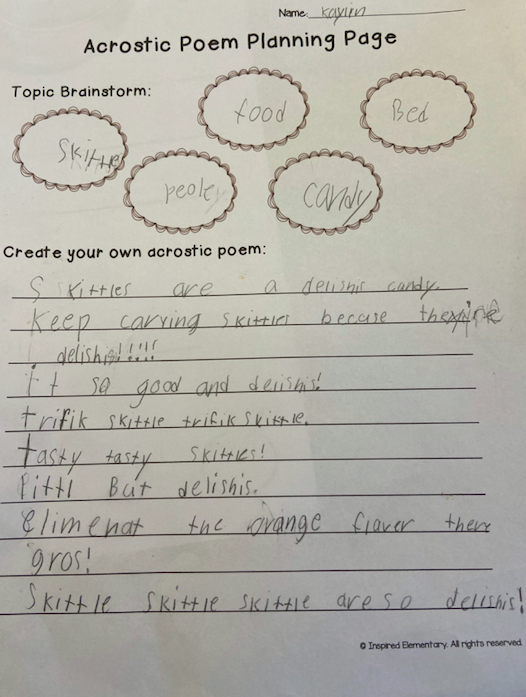 Name: Kaylin
Acrostic Poem Planning Page
Topic Brainstorm:
food
Bed
Skittle
peole
candy
Create your own acrostic poem:
S skittles are a delishis candy.
Keep carving skittles becuse
delishis!!!!!
It so good and delishis!
trifik skittle trifik skittle.
tasty tasty skittles!
littl But delishis.
Elimenat the orange flaver there
gros!
Skittle skittle skittle are so delishis!
© Inspired Elementary. All rights reserved.